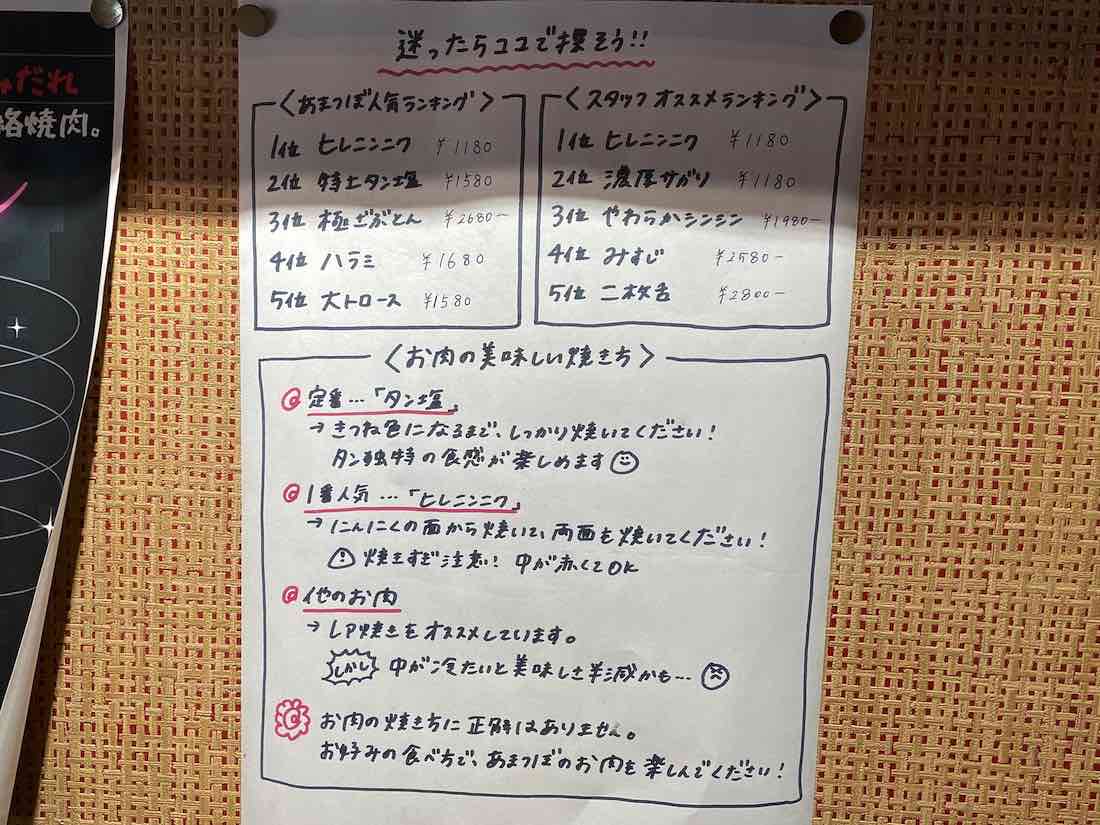 だれ
格焼肉。
迷ったらココで探そう!!
〈あまつぼ人気ランキング〉
1位 ヒレニンニク ¥1180
2位 特上タン塩 ¥1580
3位 極ざぶとん ¥2680-
4位 ハラミ ¥1680
5位 大トロース ¥1580
〈スタッフオススメランキング〉
1位 ヒレニンニク ¥1180
2位 濃厚サガリ ¥1180
3位 やわらかシンシン ¥1980-
4位 みすじ ¥2580-
5位 二枚舌 ¥2800-
〈お肉の美味しい焼き方〉
定番…「タン塩」
→きつね色になるまで、しっかり焼いてください!
タン独特の食感が楽しめます
1番人気…「ヒレニンニク」
→にんにくの面から焼いて、両面を焼いてください!
焼きすぎ注意! 中が赤くてOK
他のお肉
→レア焼きをオススメしています。
しかし 中が冷たいと美味しさ半減かも…
お肉の焼き方に正解はありません。
お好みの食べ方で、あまつぼのお肉を楽しんでください!